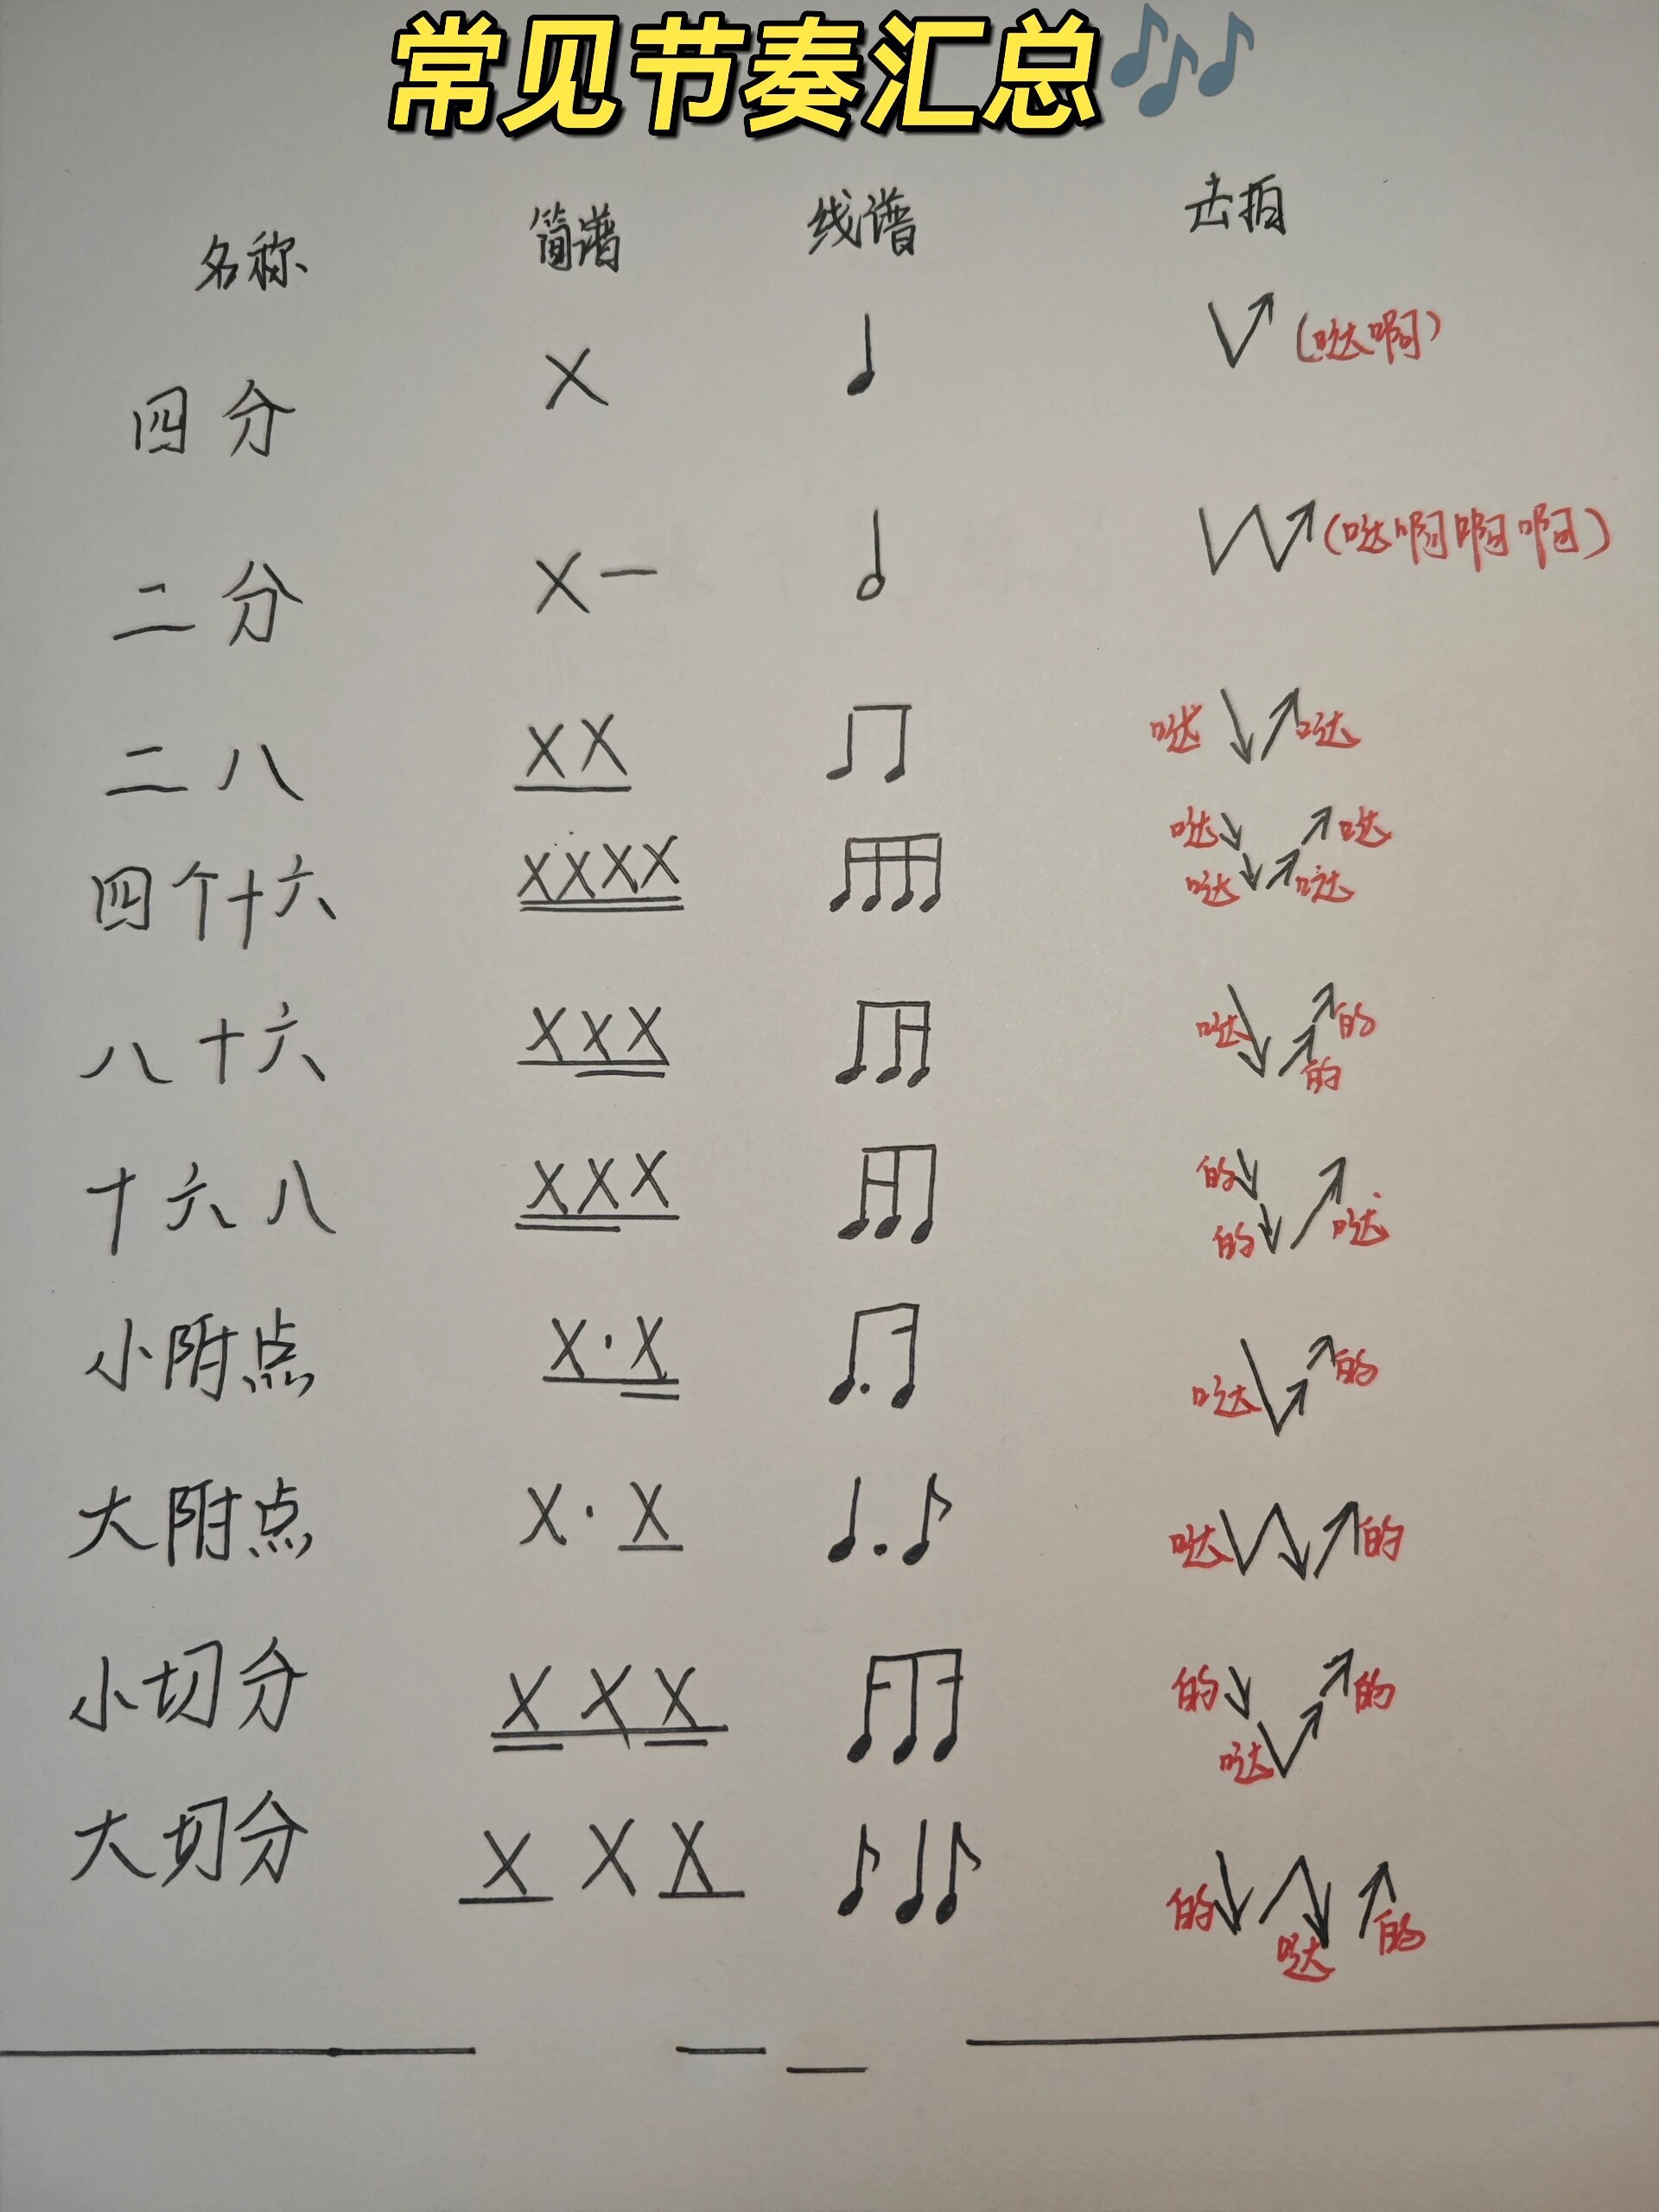 常见节奏汇总
名称 简谱 线谱 击拍
四分 X (哒啊)
二分 X— (哒啊啊啊)
二八 XX 哒 哒
四个十六 XXXX 哒 哒 哒 哒
八十六 XXX 哒 的 的
十六八 XXX 的 的 哒
小附点 X·X 哒 的
大附点 X·X 哒 的
小切分 X X X 的 哒 的
大切分 X X X 的 哒 的